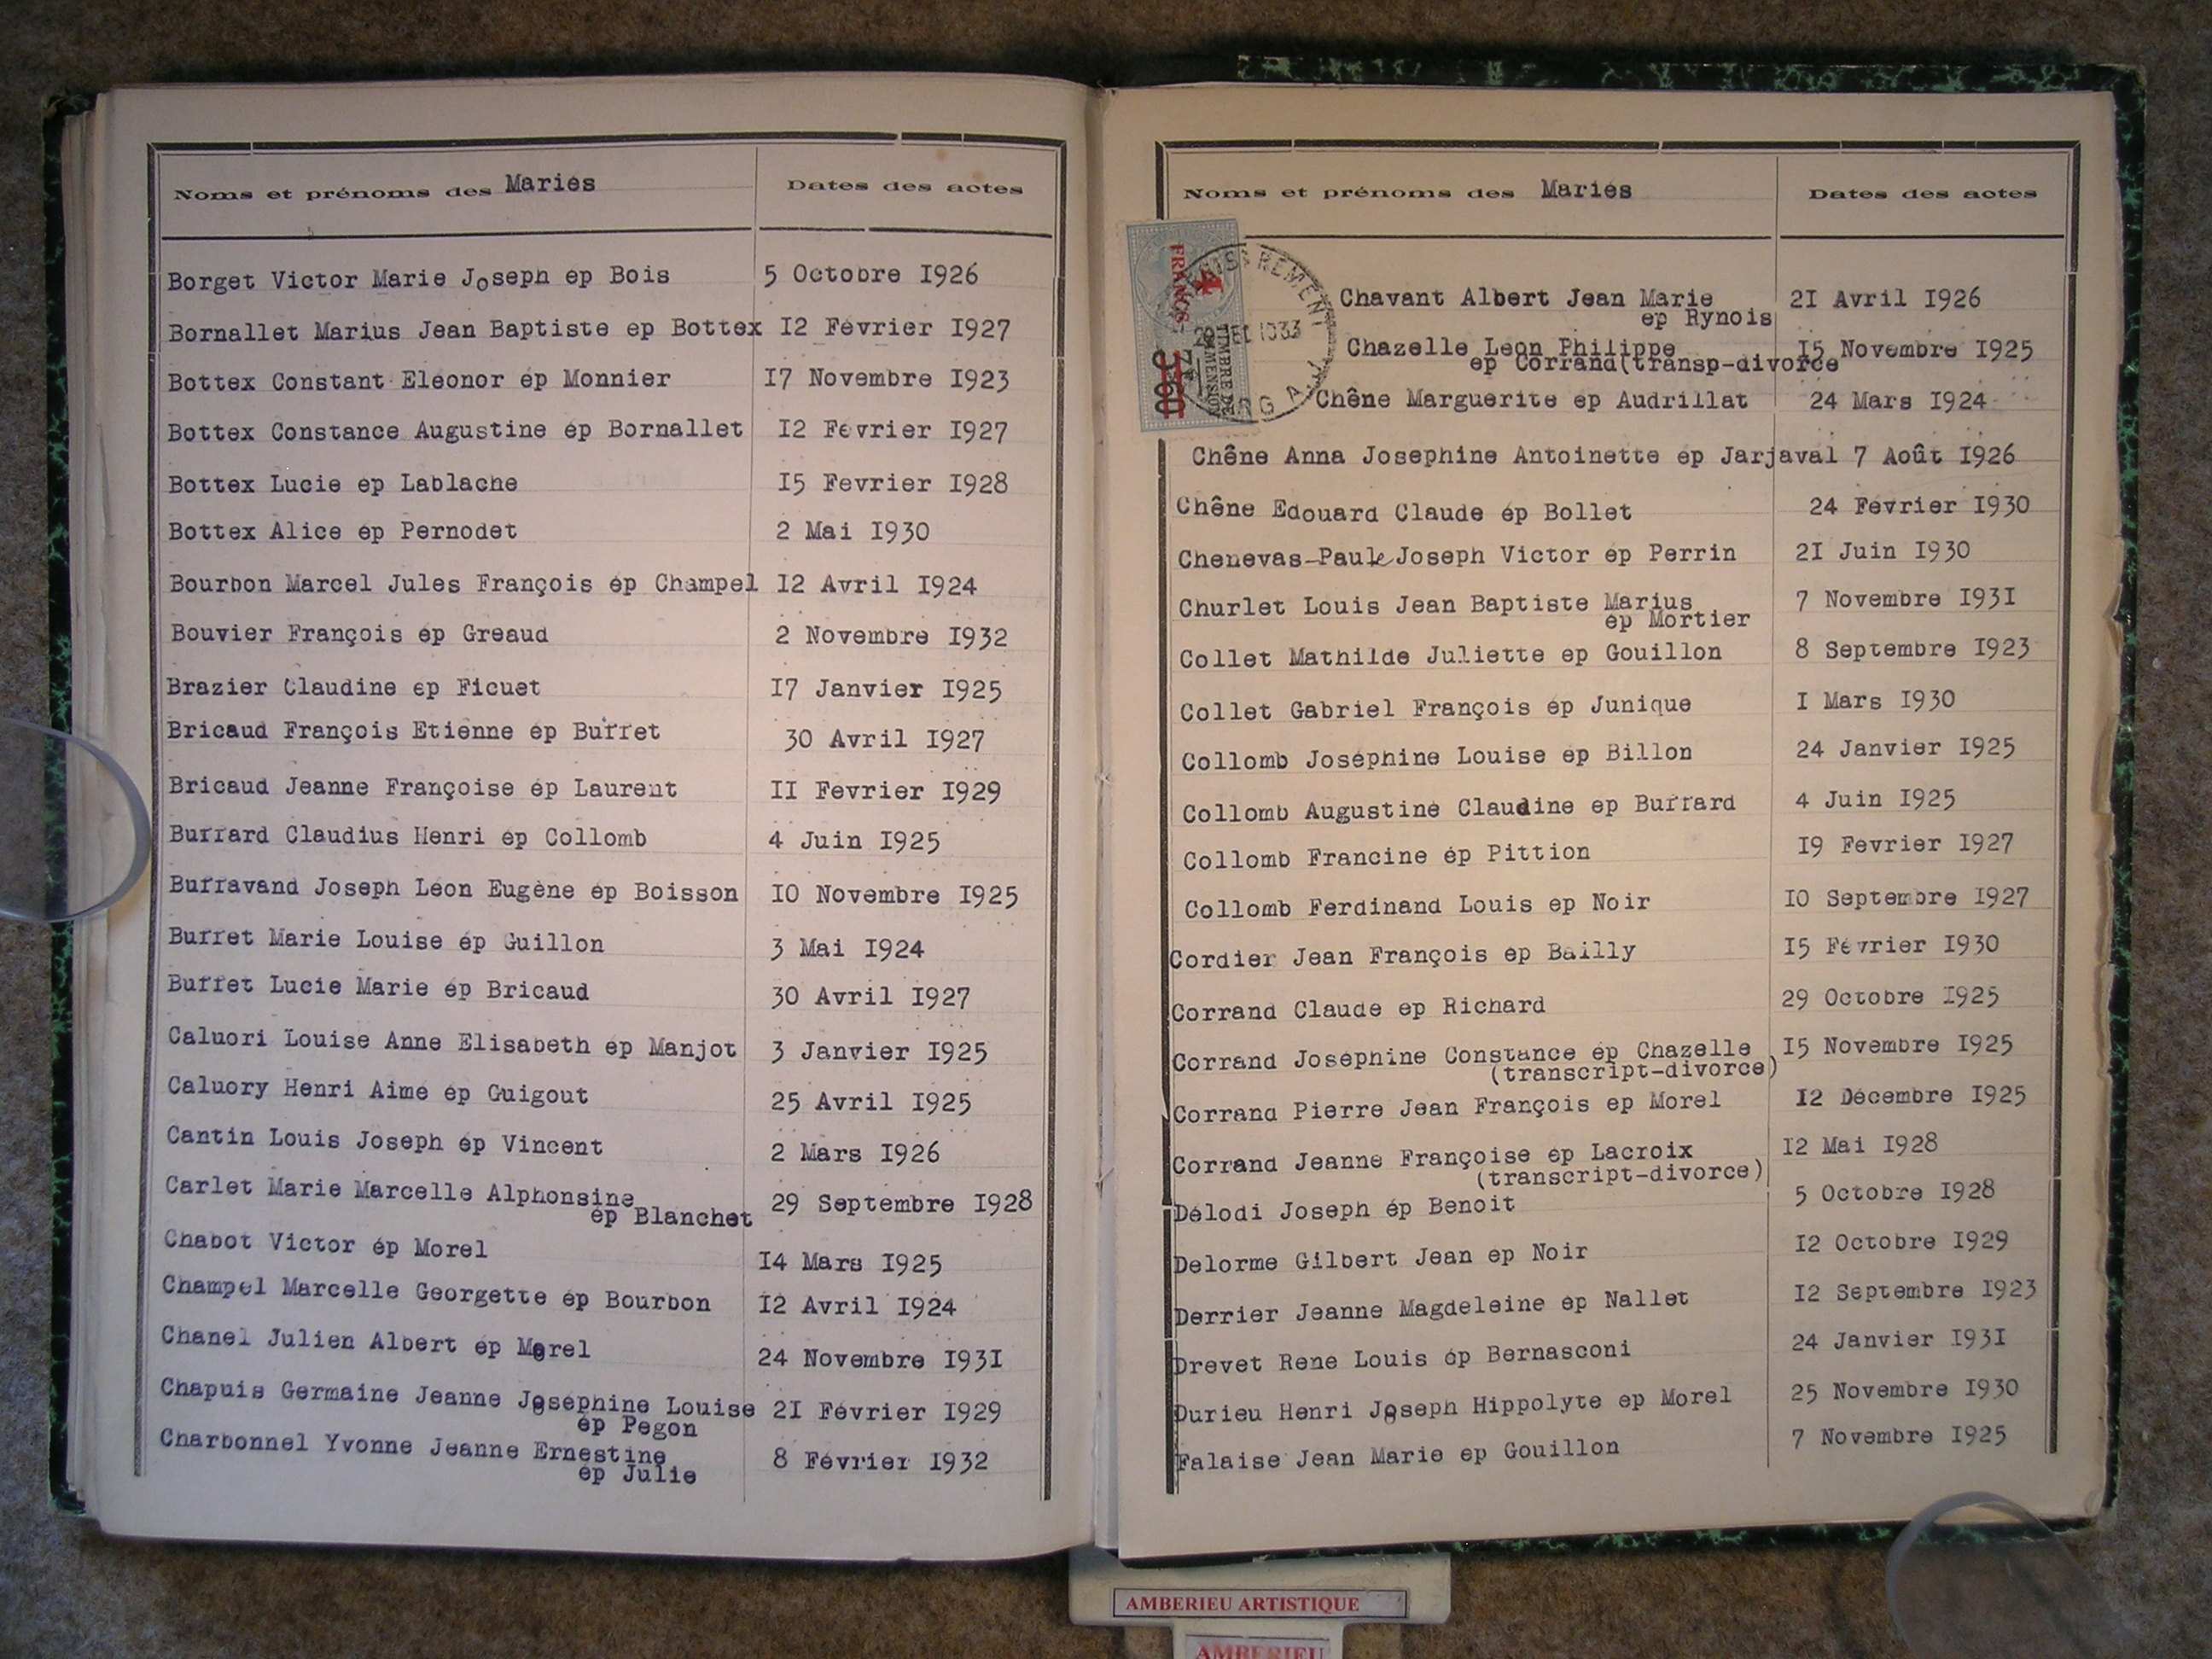 Noms et prénoms des Mariés
Dates des actes
Borget Victor Marie Joseph ép Bois 5 Octobre I926
Bornallet Marius Jean Baptiste ep Bottex I2 Février I927
Bottex Constant Eléonor ép Monnier I7 Novembre I923
Bottex Constance Augustine ép Bornallet I2 Février I927
Bottex Lucie ep Lablache I5 Fevrier I928
Bottex Alice ép Pernodet 2 Mai I930
Bourbon Marcel Jules François ép Champel I2 Avril I924
Bouvier François ép Greaud 2 Novembre I932
Brazier Claudine ep Ficuet I7 Janvier I925
Bricaud François Etienne ép Buffet 30 Avril I927
Bricaud Jeanne Françoise ép Laurent II Fevrier I929
Buffard Claudius Henri ép Collomb 4 Juin I925
Buffavand Joseph Léon Eugène ép Boisson I0 Novembre I925
Buffet Marie Louise ép Guillon 3 Mai I924
Buffet Lucie Marie ép Bricaud 30 Avril I927
Caluori Louise Anne Elisabeth ép Manjot 3 Janvier I925
Caluory Henri Aimé ép Guigout 25 Avril I925
Cantin Louis Joseph ép Vincent 2 Mars I926
Carlet Marie Marcelle Alphonsine 29 Septembre I928
ép Blanchet
Chabot Victor ép Morel I4 Mars I925
Champel Marcelle Georgette ép Bourbon I2 Avril I924
Chanel Julien Albert ép Morel 24 Novembre I93I
Chapuis Germaine Jeanne Joséphine Louise 2I Février I929
ép Pegon
Charbonnel Yvonne Jeanne Ernestine 8 Février I932
ép Julie
Noms et prénoms des Mariés
Dates des actes
4
FRANCS
TIMBRE DE
DIMENSION
3F60
Chavant Albert Jean Marie 2I Avril I926
ép Rynois
Chazelle Léon Philippe I5 Novembre I925
ep Corrand(transp-divorce
Chêne Marguerite ép Audrillat 24 Mars I924
Chêne Anna Josephine Antoinette ép Jarjaval 7 Août I926
Chêne Edouard Claude ép Bollet 24 Février I930
Chenevas-Paule Joseph Victor ép Perrin 2I Juin I930
Churlet Louis Jean Baptiste Marius 7 Novembre I93I
ép Mortier
Collet Mathilde Juliette ep Gouillon 8 Septembre I923
Collet Gabriel François ép Junique I Mars I930
Collomb Joséphine Louise ép Billon 24 Janvier I925
Collomb Augustine Claudine ep Buffard 4 Juin I925
Collomb Francine ép Pittion I9 Fevrier I927
Collomb Ferdinand Louis ep Noir I0 Septembre I927
Cordier Jean François ép Bailly I5 Février I930
Corrand Claude ep Richard 29 Octobre I925
Corrand Joséphine Constance ép Chazelle I5 Novembre I925
(transcript-divorce)
Corrand Pierre Jean François ep Morel I2 Décembre I925
Corrand Jeanne Françoise ép Lacroix I2 Mai I928
(transcript-divorce)
Délodi Joseph ép Benoit 5 Octobre I928
Delorme Gilbert Jean ep Noir I2 Octobre I929
Derrier Jeanne Magdeleine ép Nallet I2 Septembre I923
Drevet René Louis ép Bernasconi 24 Janvier I93I
Durieu Henri Joseph Hippolyte ep Morel 25 Novembre I930
Falaise Jean Marie ep Gouillon 7 Novembre I925
AMBERIEU ARTISTIQUE
AMBERIEU